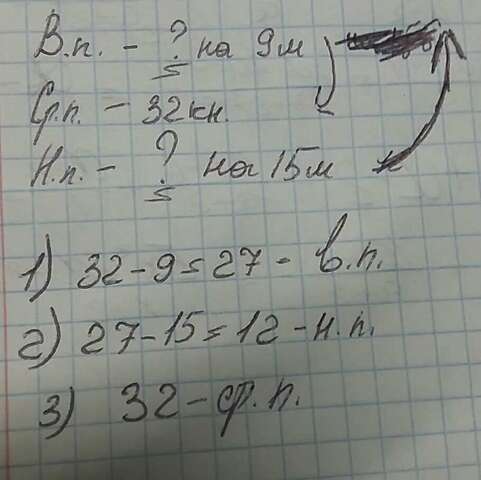 В.п. - ? на 9м
Ср.п. - 32кн.
Н.п. - ? на 15м
1) 32-9=27 - в.п.
2) 27-15=12 - н.п.
3) 32 - ср.п.